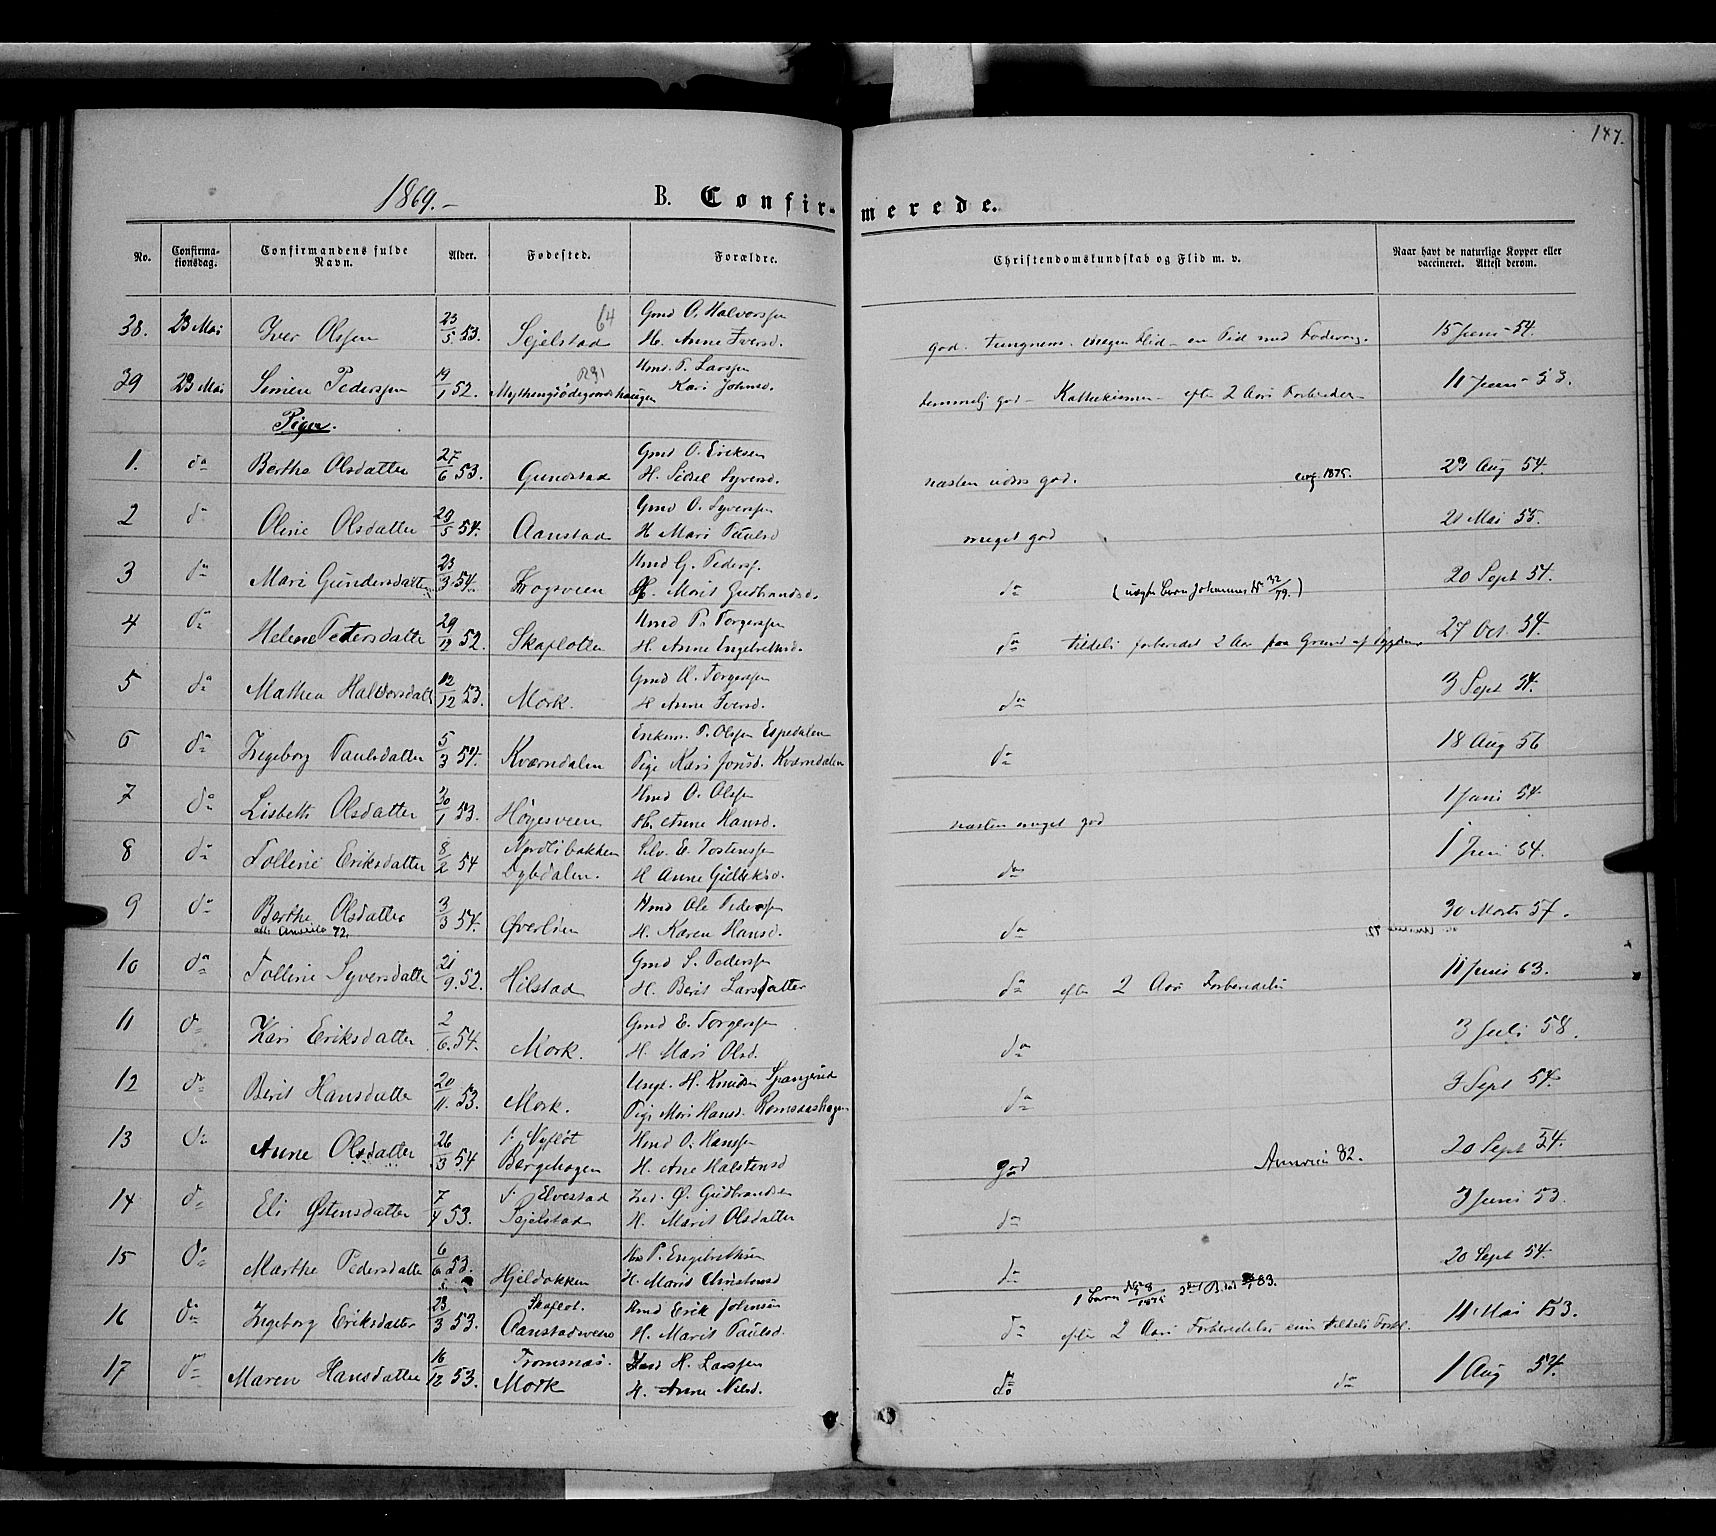 187.
1869.-
B. Confir-merede.
No.
Confirma-
tionsdag.
Confirmandens fulde
Navn.
Alder.
Fødested.
Forældre.
Christendomskundskab og Flid m. v.
Naar havt de naturlige Kopper eller
vaccineret. Attest derom.
38. 23 Mai Iver Olssen 23/5 53. Sejelstad 64 Gmd O. Halvorssen
H. Anne Iversd. god. 15 Juni 54.
39 23 Mai Simen Pederssen 19/1 52. Hmd. P. Larssen
Kari Johnsd. temmelig god - efter 2 Aars Forbered. 11 Juni 53.
Piger.
1. do Berthe Olsdatter 27/6 53. Gundstad Gmd O. Eriksen
H. Sidsel Syversd. næsten god. 1875. 29 Aug 54.
2 do Oline Olsdatter 29/5 54. Aanstad Gmd O. Syverssen
H Mari Paulsd meget god 21 Mai 55.
3 do Mari Gundersdatter 23/3 54. Skogsveen Hmd G. Peders.
H. Marit Gudbrandsd. do (uægte barn Johannes No 32/79.) 20 Sept 54.
4 do Helene Pedersdatter 29/12 52. Skaflotten Hmd P. Torgerssen
H. Anne Engebrethsd. do tildels forberedet 2 Aar paa Grund af 27 Oct. 54.
5 do Mathea Halvorsdatt 12/12 53. Mork. Gmd H. Torgerssen
H Anne Iversd. do 3 Sept 54.
6 do Ingeborg Paulsdatter 5/3 54. Kværndalen Enkem. P. Olssen Espedalen
Pige Kari Jonsd. Kværndalen do 18 Aug 56
7 do Lisbeth Olsdatter 30/1 53. Høgesveen Hmd O. Olssen
H. Anne Hansd. næsten meget god 1 Juni 54.
8 do Tolline Eriksdatter 8/2 54 Nordlibakken
Dybdalen. Selv. E. Tostenssen
H Anne do 1 Juni 54.
9 do Berthe Olsdatter 3/3 54. Øverlien Hmd Ole Pederssen
H. Karen Hansd. do 30 Marts 57.
72.
10 do Tolline Syversdatter 21/9 52. Hilstad Gmd S. Pederssen
H. Berit Larsdatter do efter 2 Aars Forberedelse 11 Juni 63.
11 do Kari Eriksdatter 2/6 54. Mork. Gmd E. Torgerssen
H. Mari Olsd. do 3 Juli 58.
12 do Berit Hansdatter 20/11 53. Mork. Ungk. H. Knudsen Spangrud
Pige Mari Hansd. Romsaashagen do 3 Sept 54.
13 do Anne Olsdatter 26/3 54 f. Nyfløt
Bergehagen Hmd O. Hanssen
H. Ane Halstensd god 82. 20 Sept 54.
14 do Eli Østensdatter 7/4 53. f. Elvestad
Sejelstad Ø. Gudbrandsen
H. Marit Olsdatter do 3 Juni 53.
15 do Marthe Pedersdatter 6/6 53. Hjeldokken P. Engebrethsen
H. Marit Christensd do 20 Sept 54.
1 barn 83.
16 do Ingeborg Eriksdatter 23/3 53. Skaflot.
Aanstadsveen Hmd Erik Johnsen
H. Marit Paulsd. do efter 2 Aars Forberedelse 11 Mai 53.
17 do Maren Hansdatter 16/12 53. Tromsnæs.
Mork H. Larssen
H. Anne Nilsd. do do 1 Aug 54.